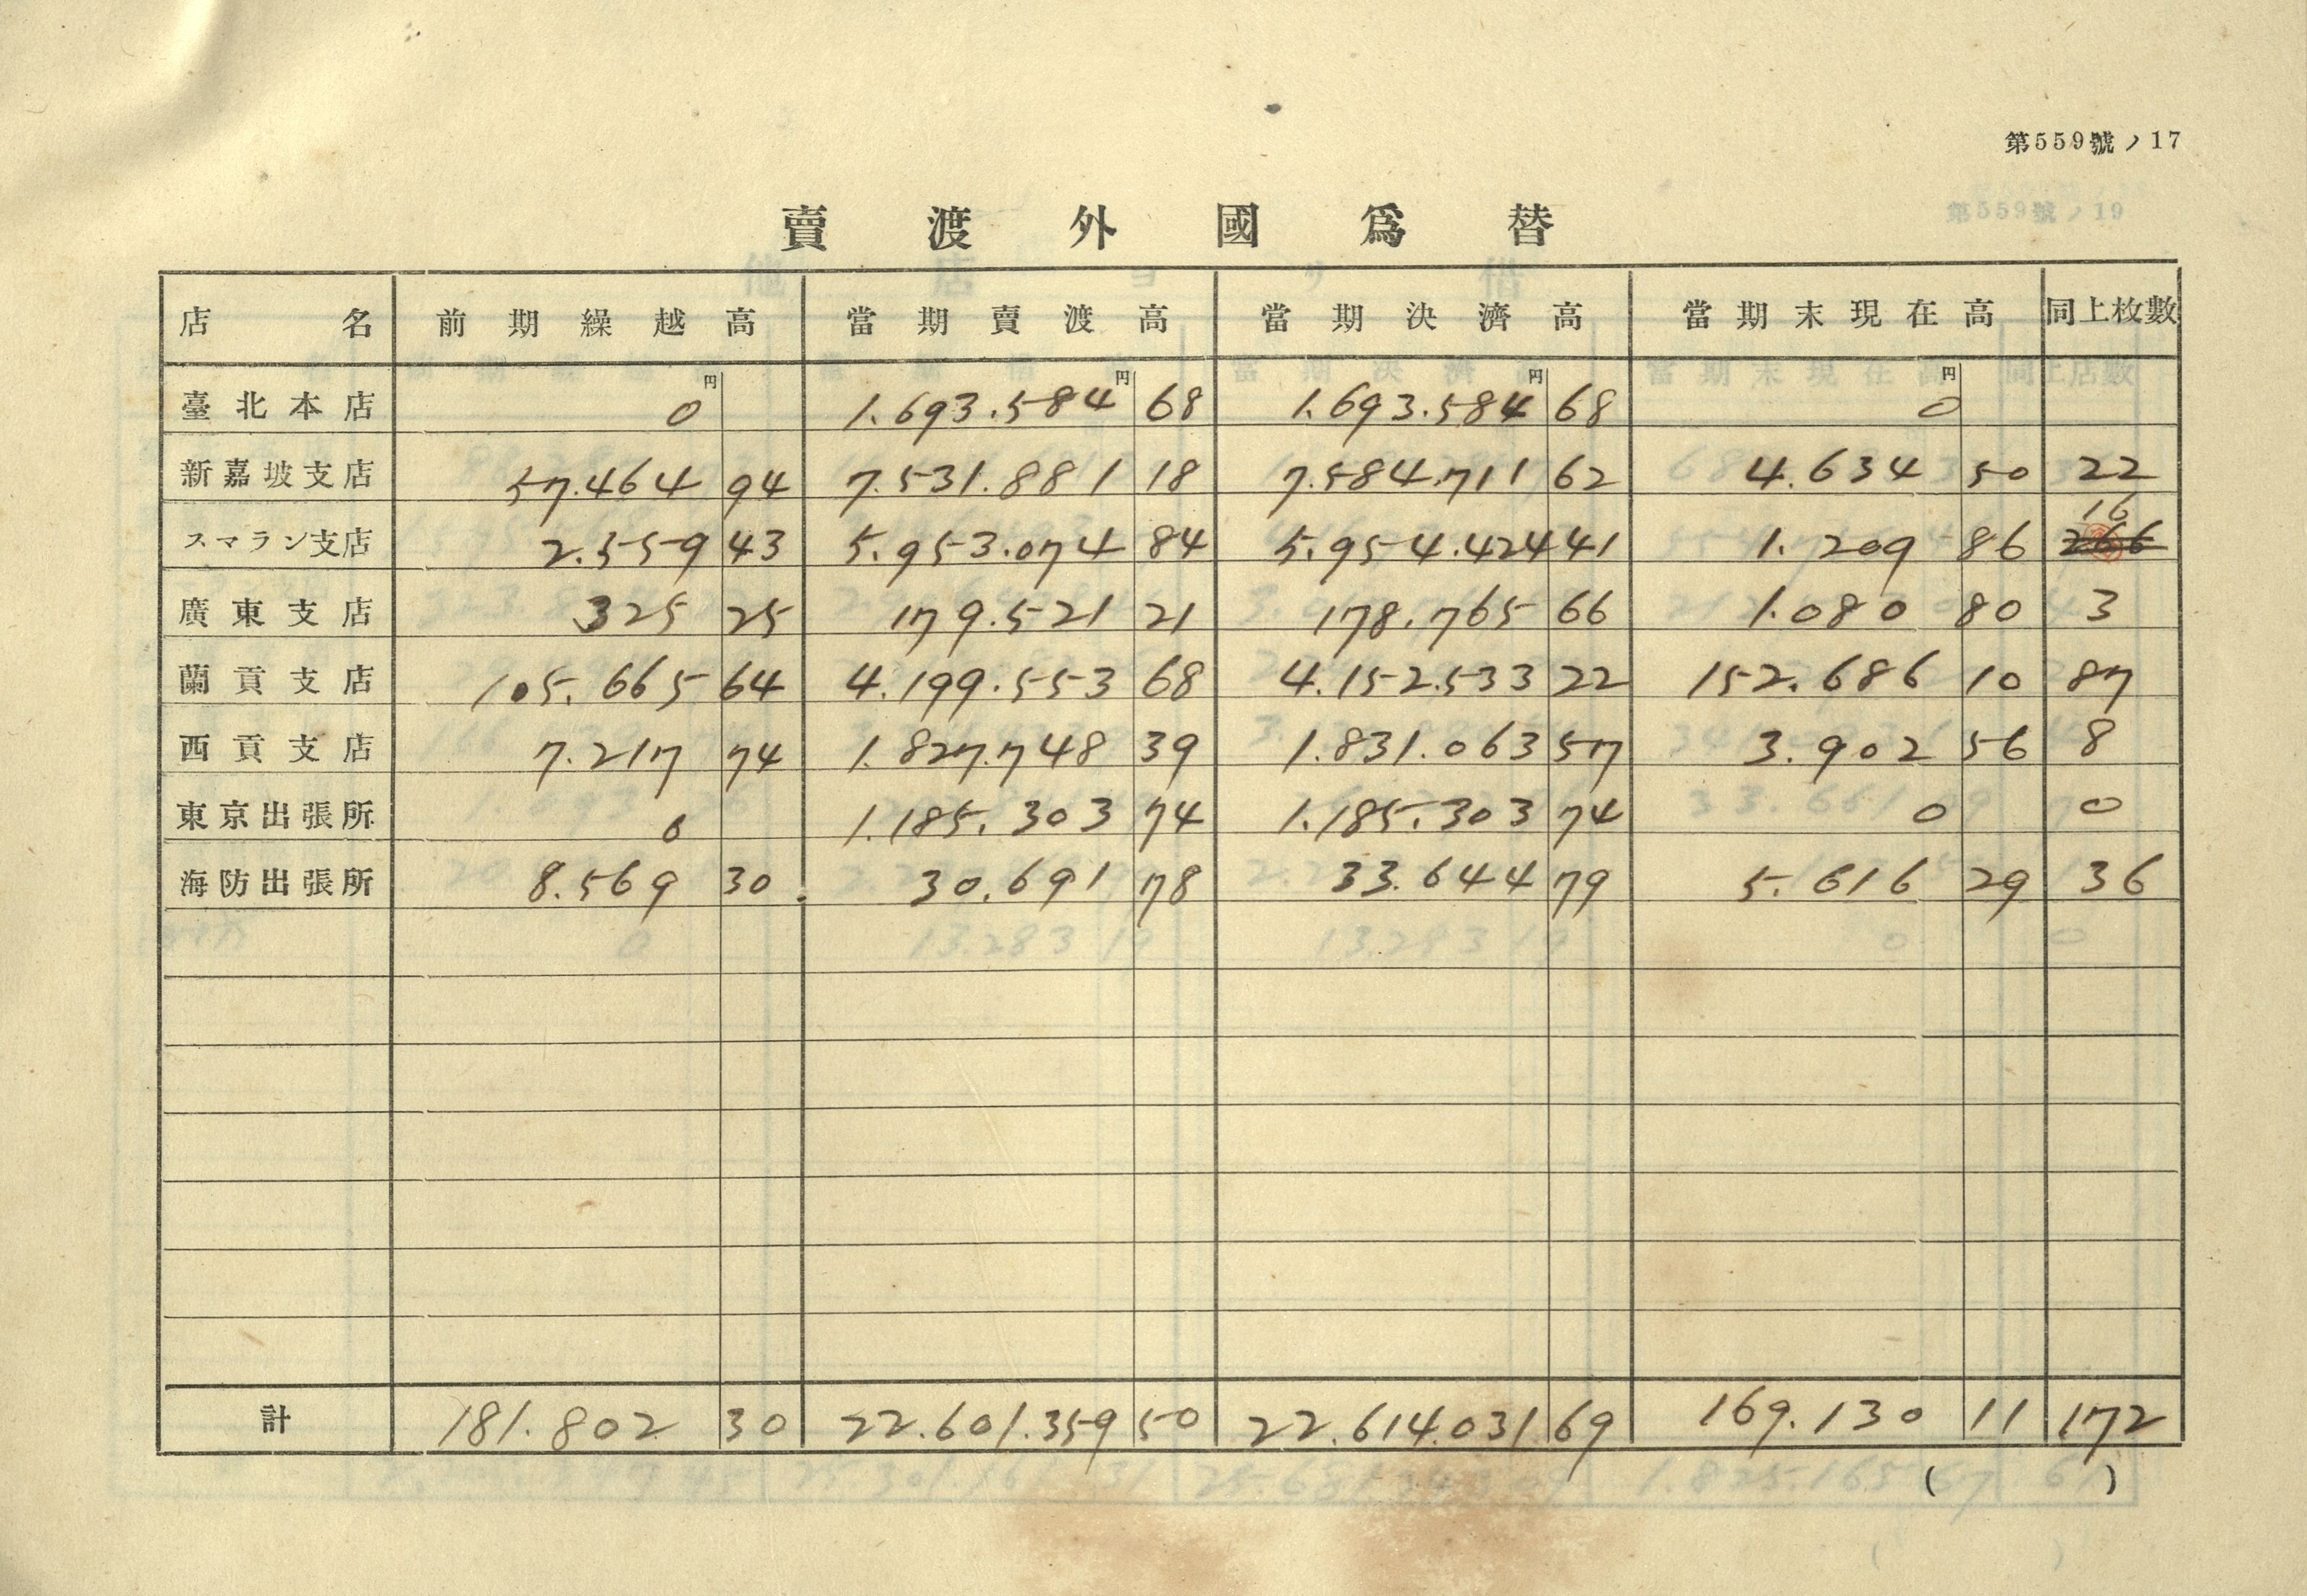 第559號ノ17
賣渡外國爲替
店名 前期繰越高 當期賣渡高 當期決濟高 當期末現在高 同上枚數
円 円 円 円
臺北本店 0 1.693.584 68 1.693.584 68 0
新嘉坡支店 57.464 94 7.531.881 18 7.584.711 62 4.634 50 22
16
スマラン支店 2.559 43 5.953.074 84 5.954.424 41 1.209 86 266
廣東支店 325 25 179.521 21 178.765 66 1.080 80 3
蘭貢支店 105.665 64 4.199.553 68 4.152.533 22 152.686 10 87
西貢支店 7.217 74 1.827.748 39 1.831.063 57 3.902 56 8
東京出張所 0 1.185.303 74 1.185.303 74 0 0
海防出張所 8.569 30 30.691 78 33.644 79 5.616 29 36
計 181.802 30 22.601.359 50 22.614.031 69 169.130 11 172
( )